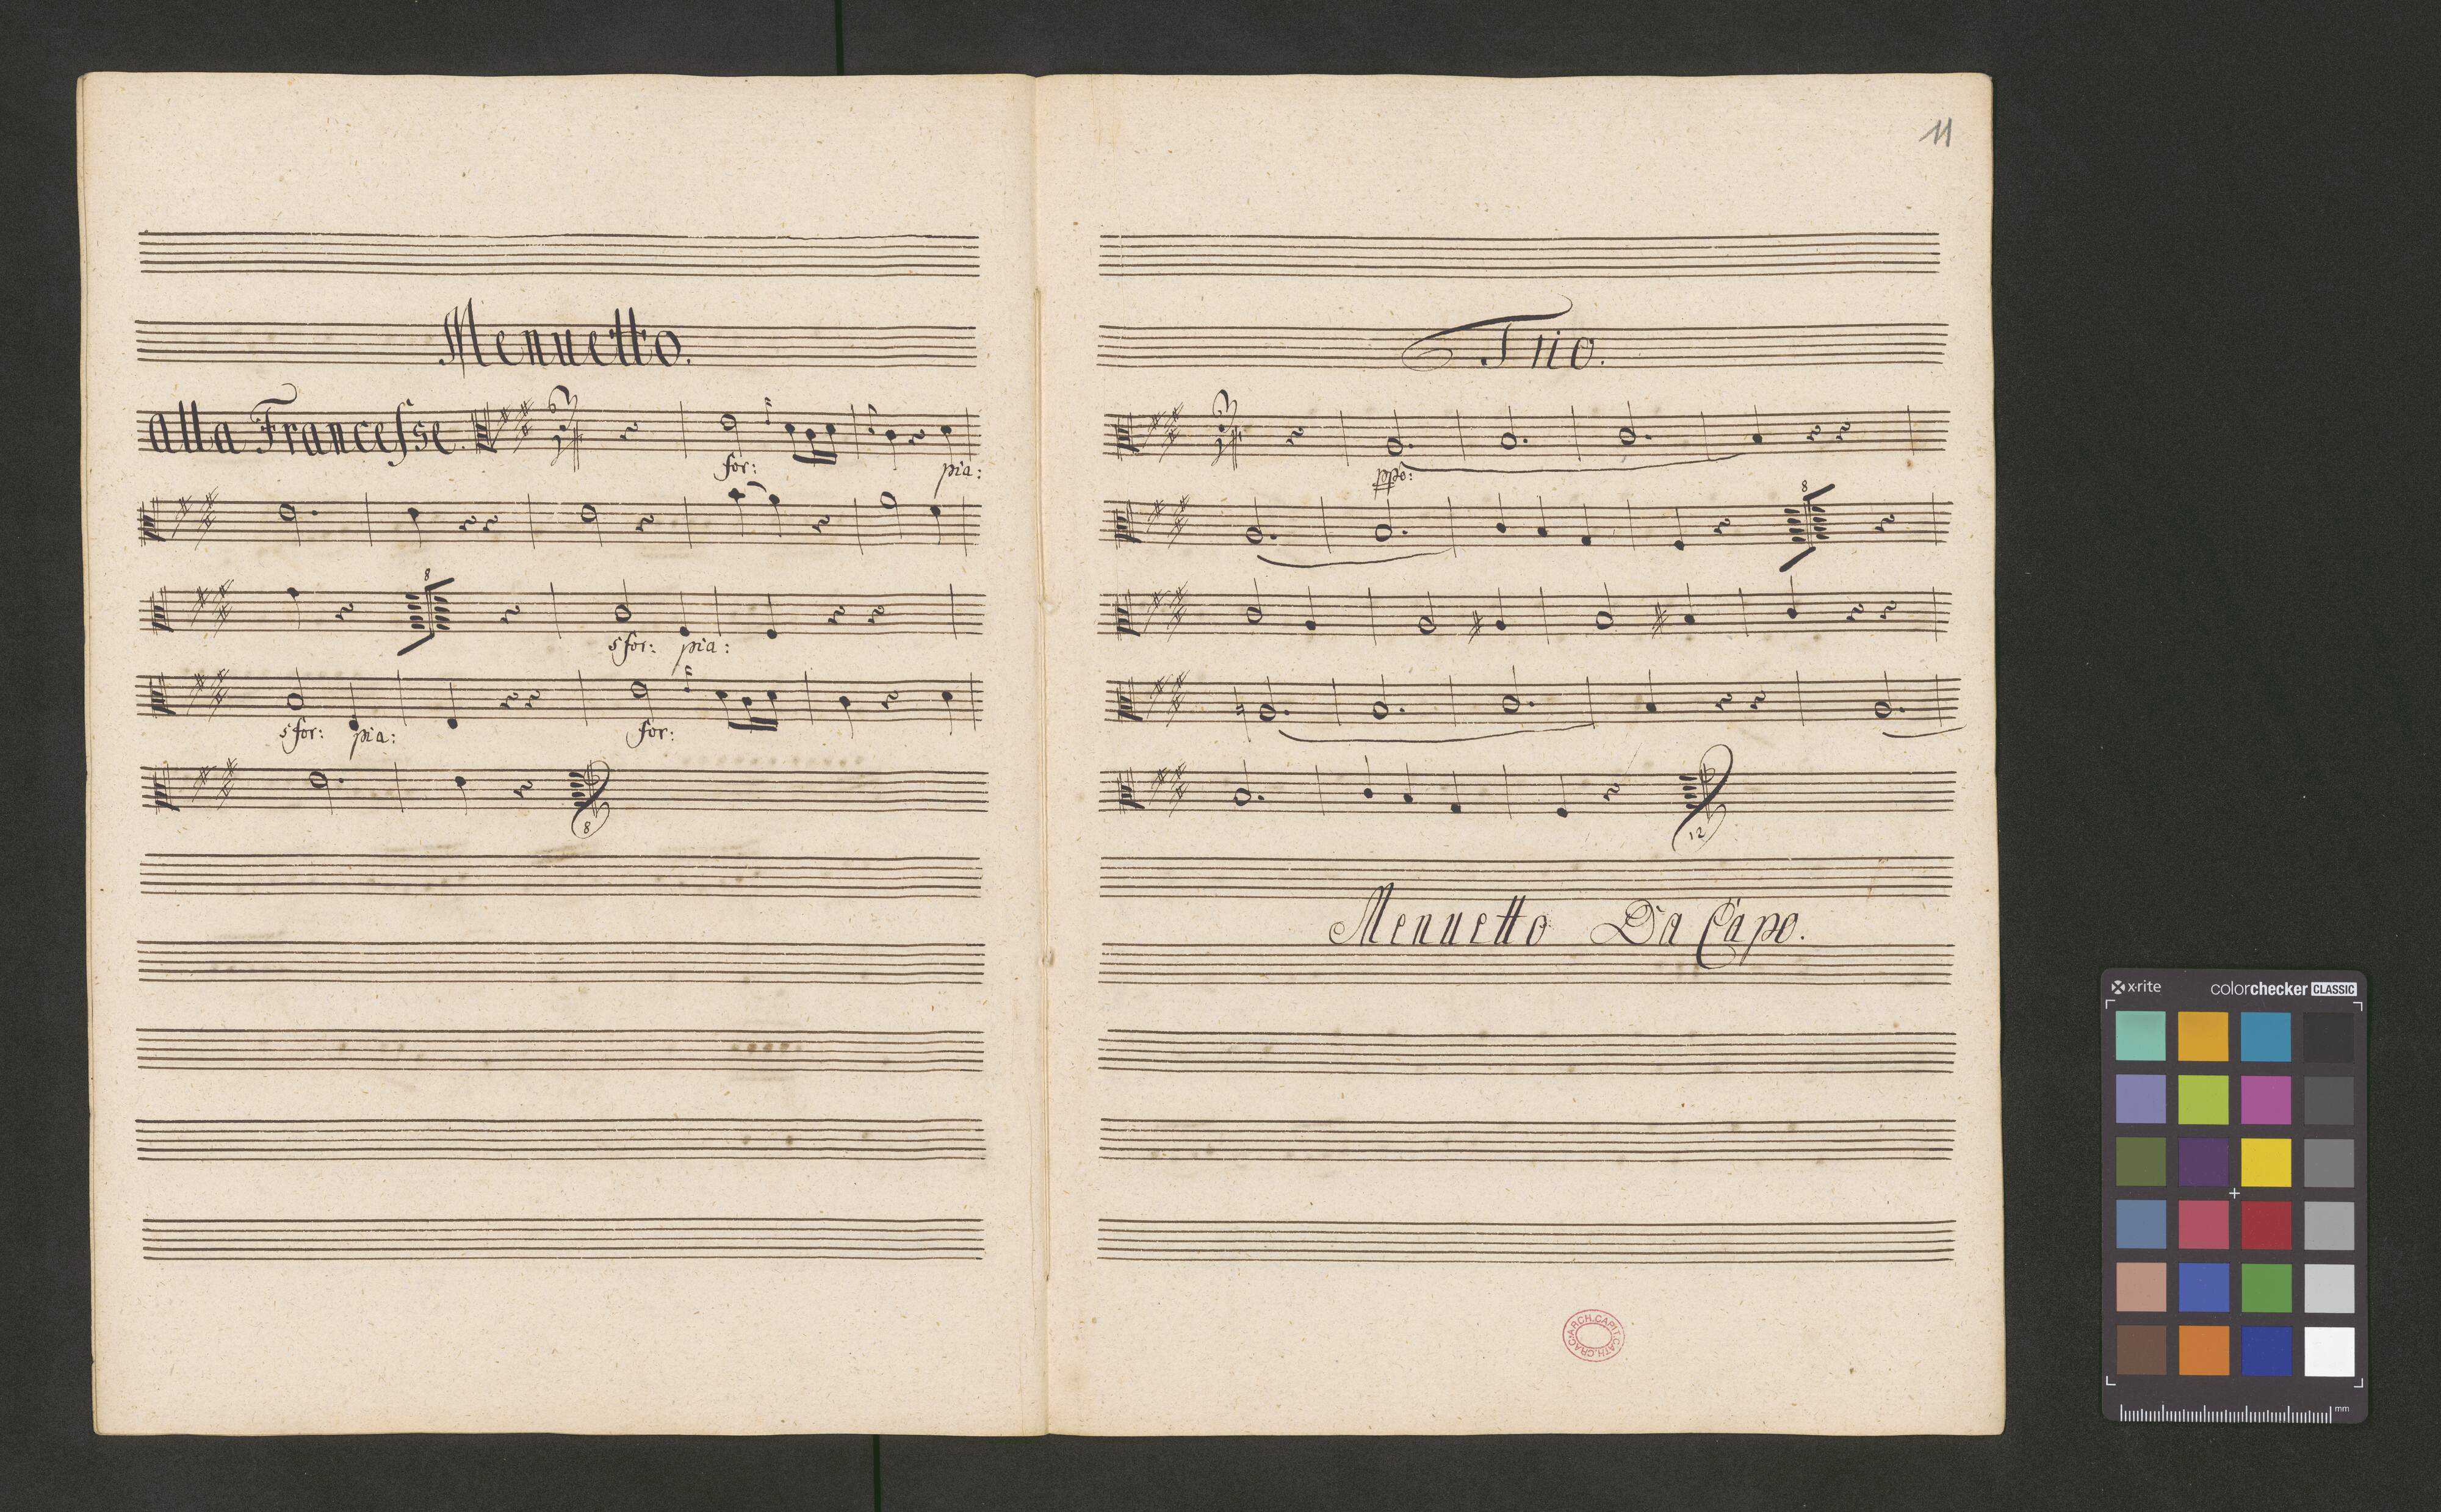 11
Menuetto.
alla Francesse.
for: pia:
8
sfor: pia:
sfor: pia: for:
8
Trio.
ppo:
8
12
Menuetto Da Capo.
ARCH.CAPIT.CATH.CRAC.
x-rite colorchecker CLASSIC
mm